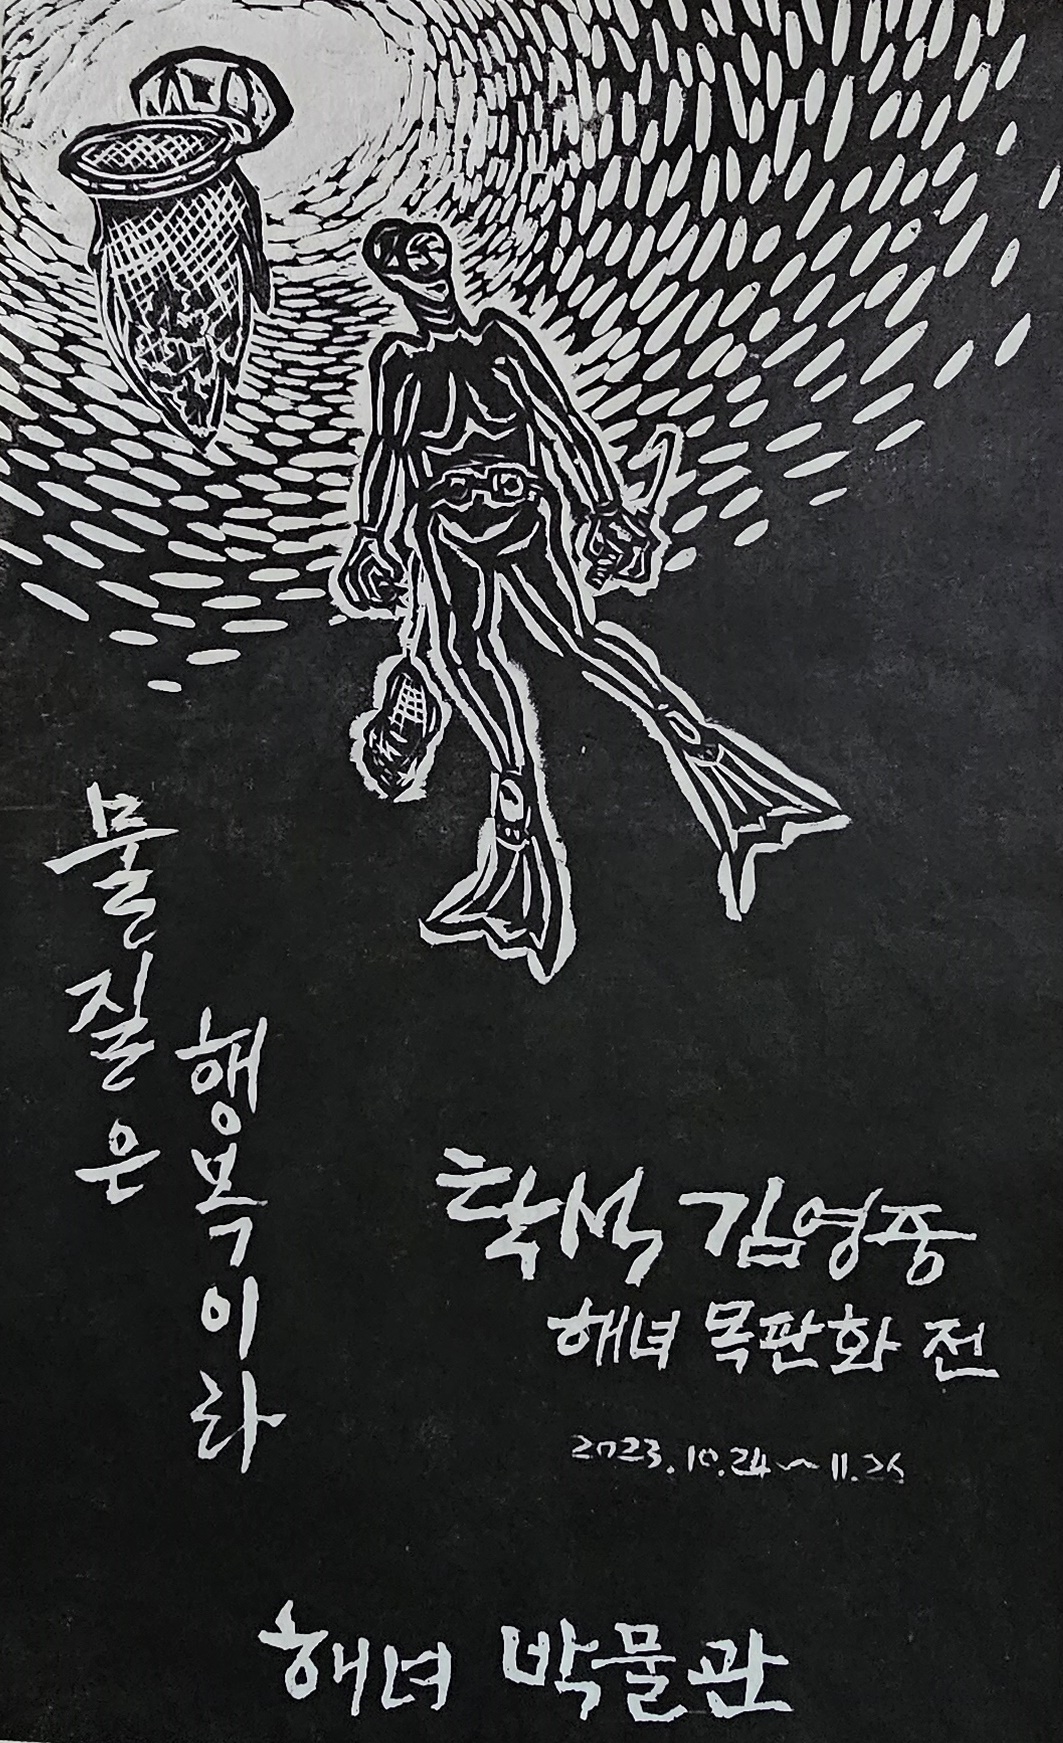 물질은
행복이라
김영중
해녀 목판화 전
2023.10.24~11.26
해녀 박물관